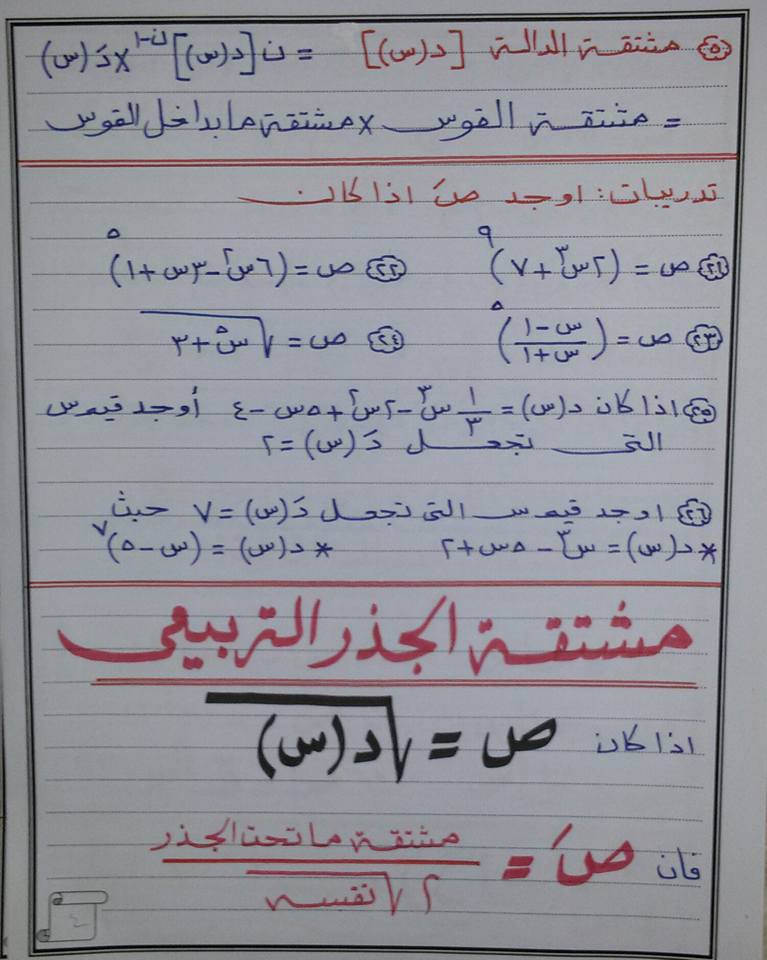 ٥ مشتقة الدالة [د(س)] = ن[د(س)]^ن-١ × دَ(س)
= مشتقة القوس × مشتقة ما بداخل القوس
تدريبات: اوجد صَ اذا كان
٢١ ص = (٢س^٣ + ٧)^٩ ٢٢ ص = (٦س^٢ - ٣س + ١)^٥
٢٣ ص = (س - ١/س + ١)^٥ ٢٤ ص = √س^٥ + ٣
٢٥ اذا كان د(س) = ١/٣ س^٣ - ٢س^٢ + ٥س - ٤ أوجد قيم س
التى تجعل دَ(س) = ٢
٢٦ اوجد قيم س التى تجعل دَ(س) = ٧ حيث
* د(س) = س^٣ - ٥س + ٢ * د(س) = (س - ٥)^٧
مشتقة الجذر التربيعى
اذا كان ص = √د(س)
فان صَ = مشتقة ما تحت الجذر
٢√نفسه
٤